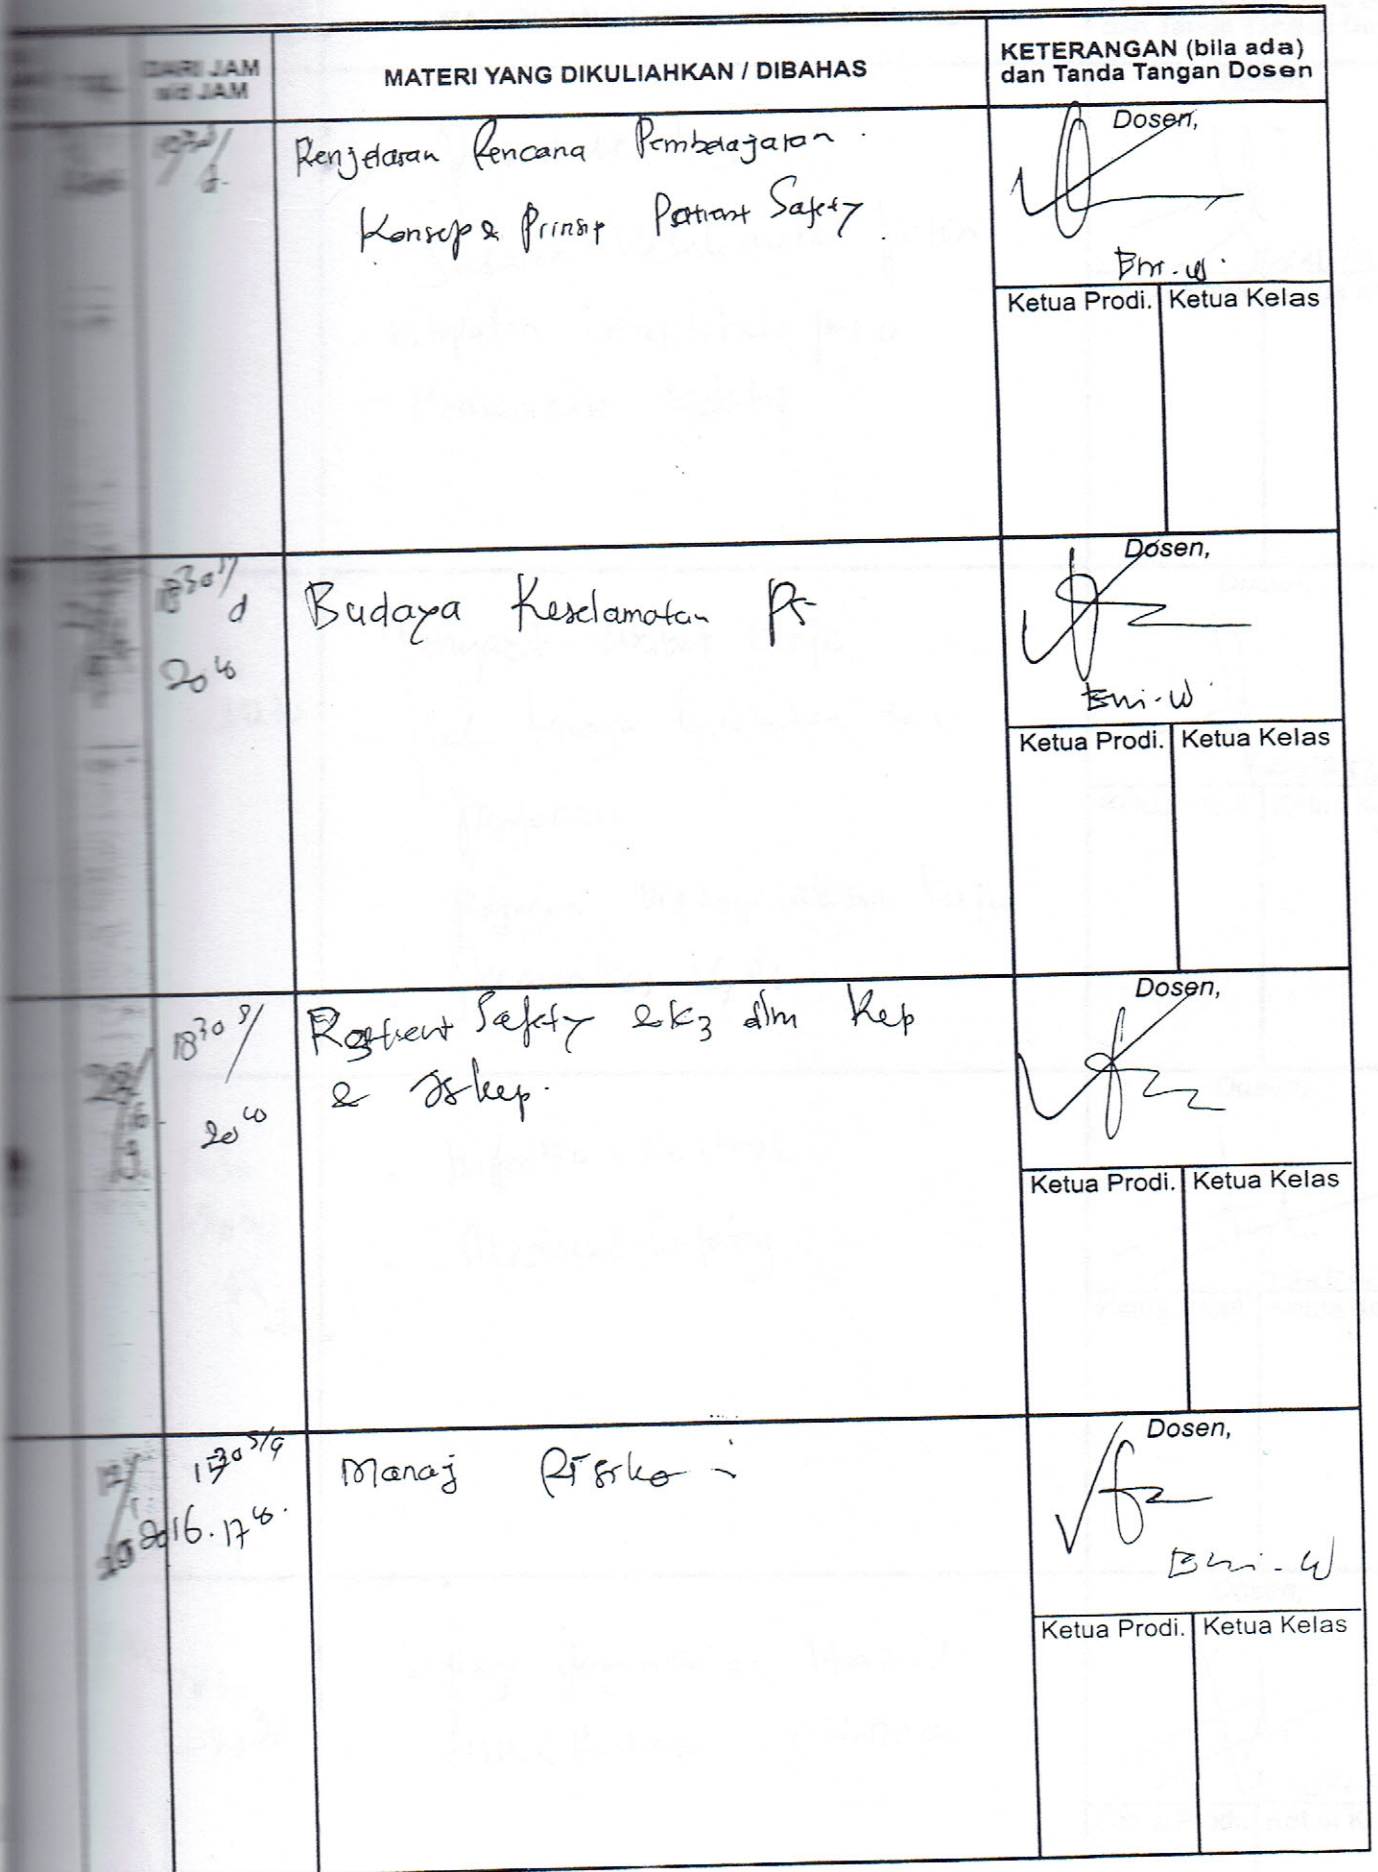 DARI JAM
s/d JAM
MATERI YANG DIKULIAHKAN / DIBAHAS
KETERANGAN (bila ada)
dan Tanda Tangan Dosen
Penjelasan Rencana Pembelajaran.
Konsep & Prinsip Patient Safety.
Dosen,
Ketua Prodi. Ketua Kelas
1830 s/
d
Budaya Keselamatan Ps
Dosen,
Eni-W
Ketua Prodi. Ketua Kelas
1830 s/
Patient Safety & K3 dlm Kep
& Askep.
Dosen,
Ketua Prodi. Ketua Kelas
Manaj Risiko
Dosen,
Eni-W
Ketua Prodi. Ketua Kelas